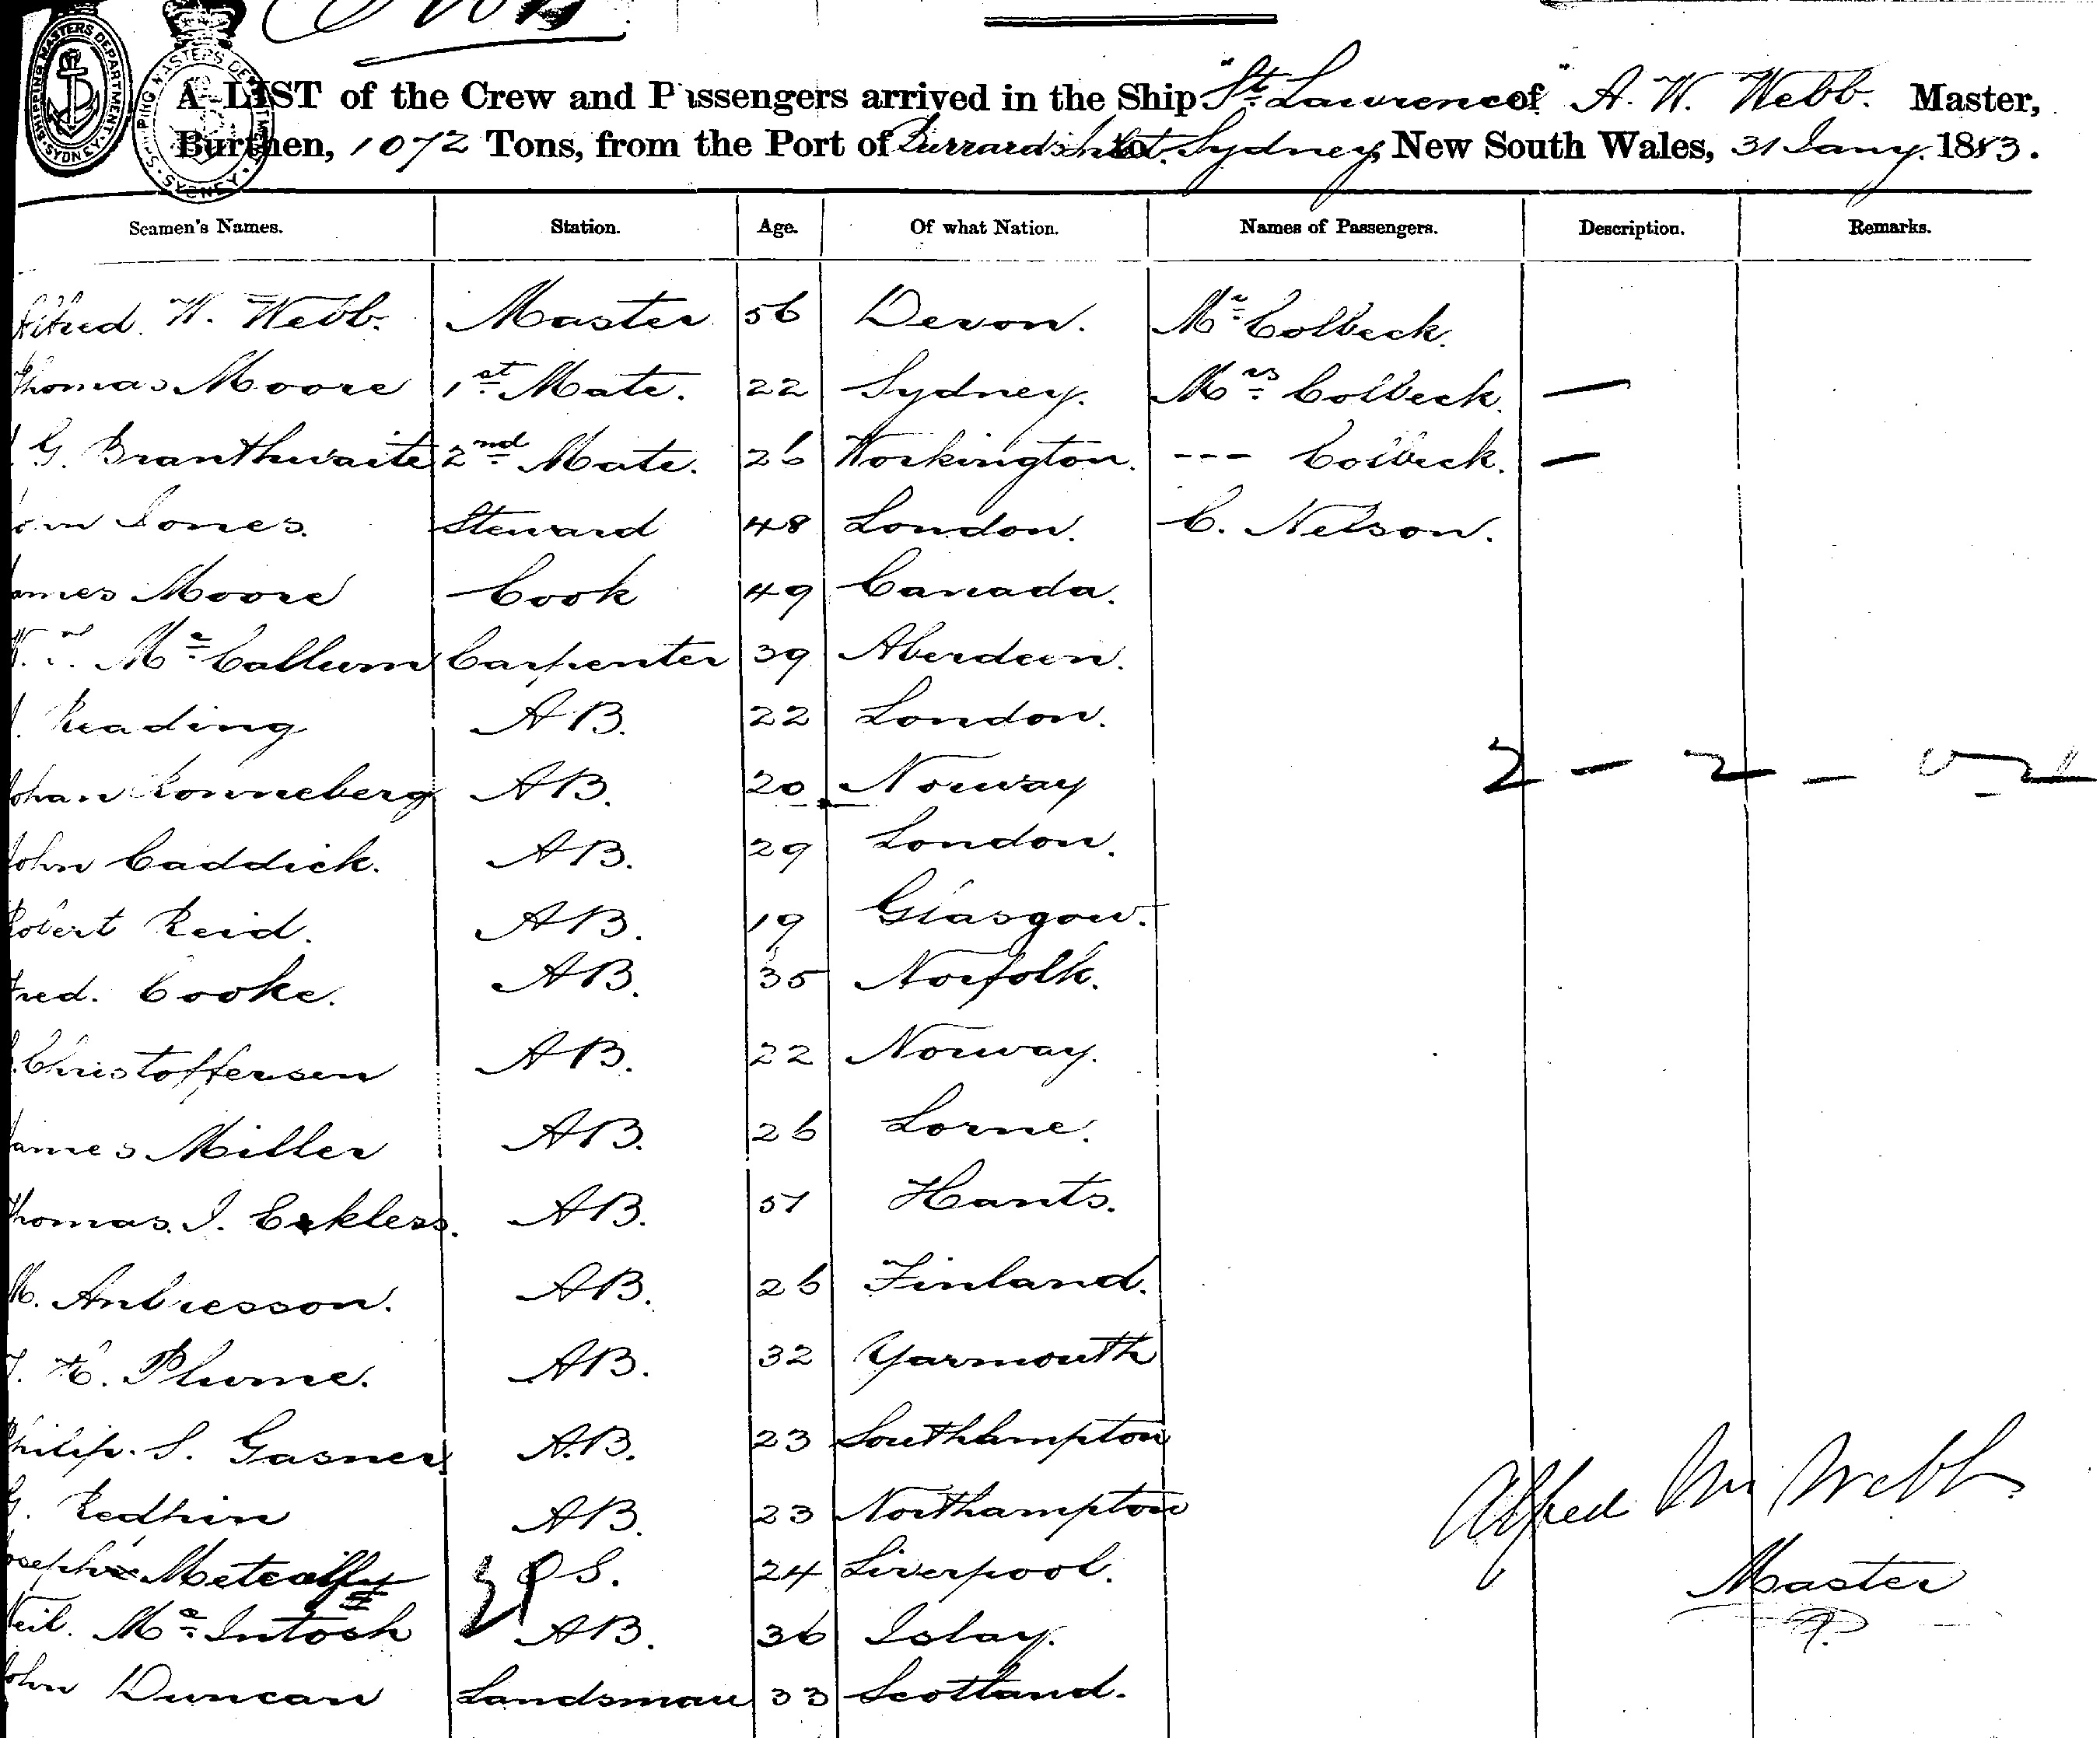 SHIPPING MASTERS DEPARTMENT SYDNEY
SHIPPING MASTERS DEPARTMENT SYDNEY
A LIST of the Crew and Passengers arrived in the Ship "St Lawrence" of A. W. Webb. Master,
Burthen, 1072 Tons, from the Port of Burrards Inlet to Sydney, New South Wales, 31 Jany. 1883.
Seamen's Names. Station. Age. Of what Nation. Names of Passengers. Description. Remarks.
Alfred. W. Webb. Master 56 Devon. Mr Colbeck.
Thomas Moore 1st Mate. 22 Sydney. Mrs Colbeck. —
G. Branthwaite 2nd Mate. 26 Workington. --- Colbeck. —
Jones. Steward 48 London. C. Nelson.
James Moore Cook 49 Canada.
Mc Callum Carpenter 39 Aberdeen.
Reading AB. 22 London.
Johan Ronneberg AB. 20 Norway
2 — 2 —
John Caddick. AB. 29 London.
Robert Reid. AB. 19 Glasgow.
Fred. Cooke. AB. 35 Norfolk.
Christoffersen AB. 22 Norway.
James Miller AB. 26 Lorne.
Thomas. J. Eckless. AB. 51 Hants.
M. AB. 26 Finland.
Plume. AB. 32 Yarmouth
Philip. S. Gasner AB. 23 Southampton
G. AB. 23 Northampton
Joseph Metcalf OS. 24 Liverpool.
Neil. Mc Intosh AB. 36 Islay.
John Duncan Landsman 33 Scotland.
Alfred W Webb
Master